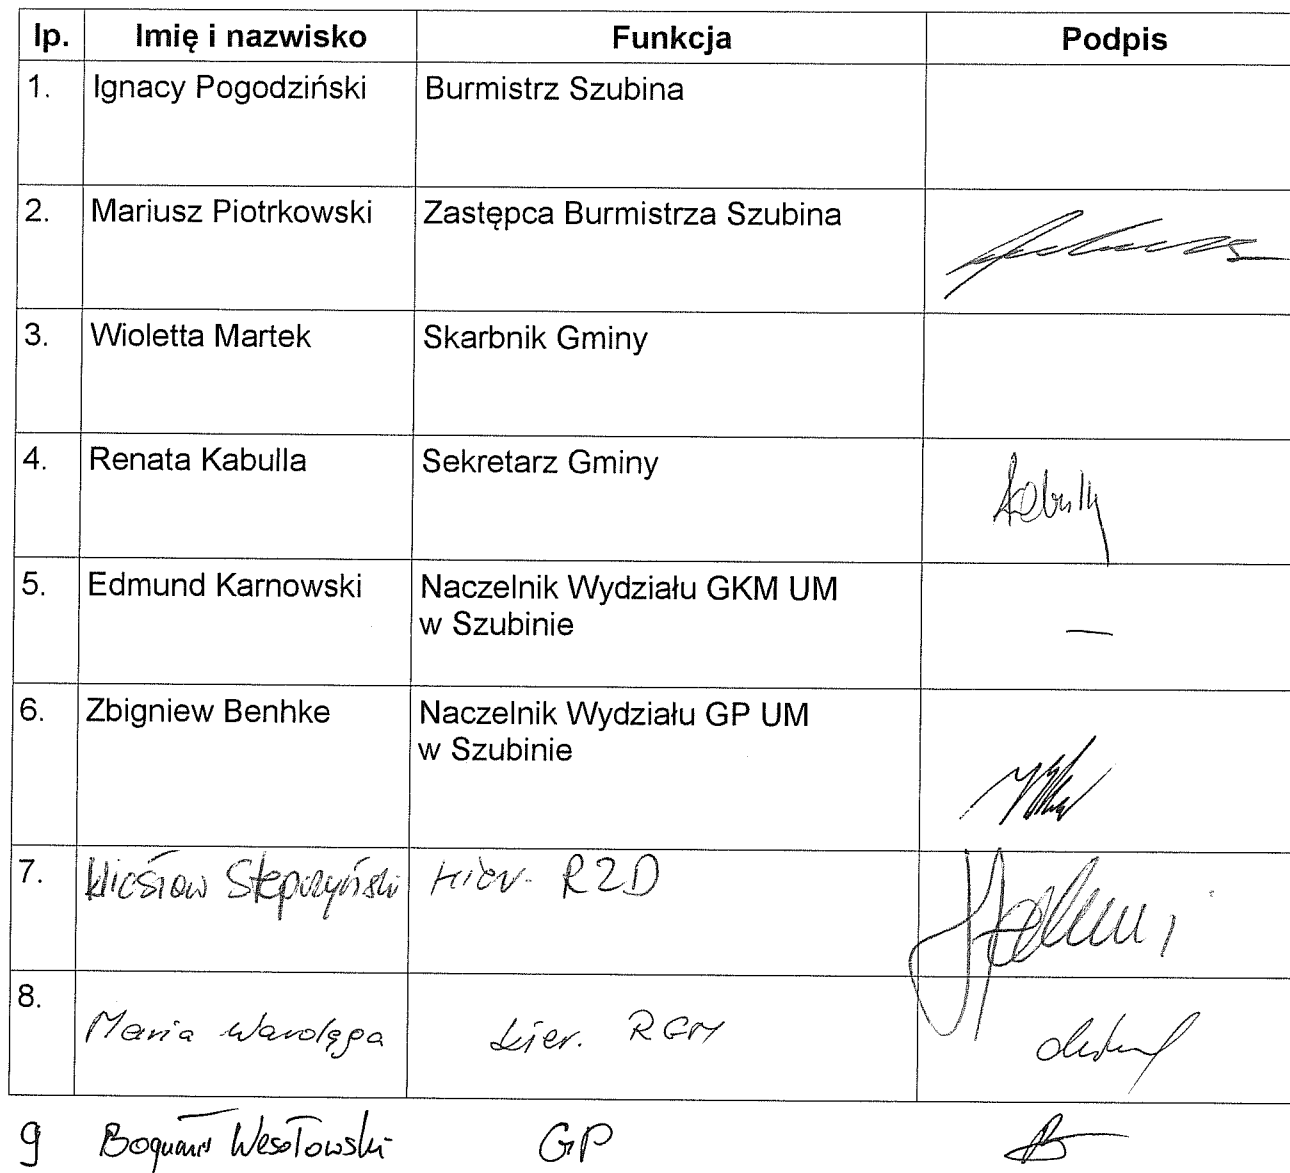 lp. Imię i nazwisko Funkcja Podpis
1. Ignacy Pogodziński Burmistrz Szubina
2. Mariusz Piotrkowski Zastępca Burmistrza Szubina
3. Wioletta Martek Skarbnik Gminy
4. Renata Kabulla Sekretarz Gminy
5. Edmund Karnowski Naczelnik Wydziału GKM UM
w Szubinie
—
6. Zbigniew Benhke Naczelnik Wydziału GP UM
w Szubinie
7. Wiesław Kier. RZD
8. Maria Kier. RGM
9 Wesołowski GP